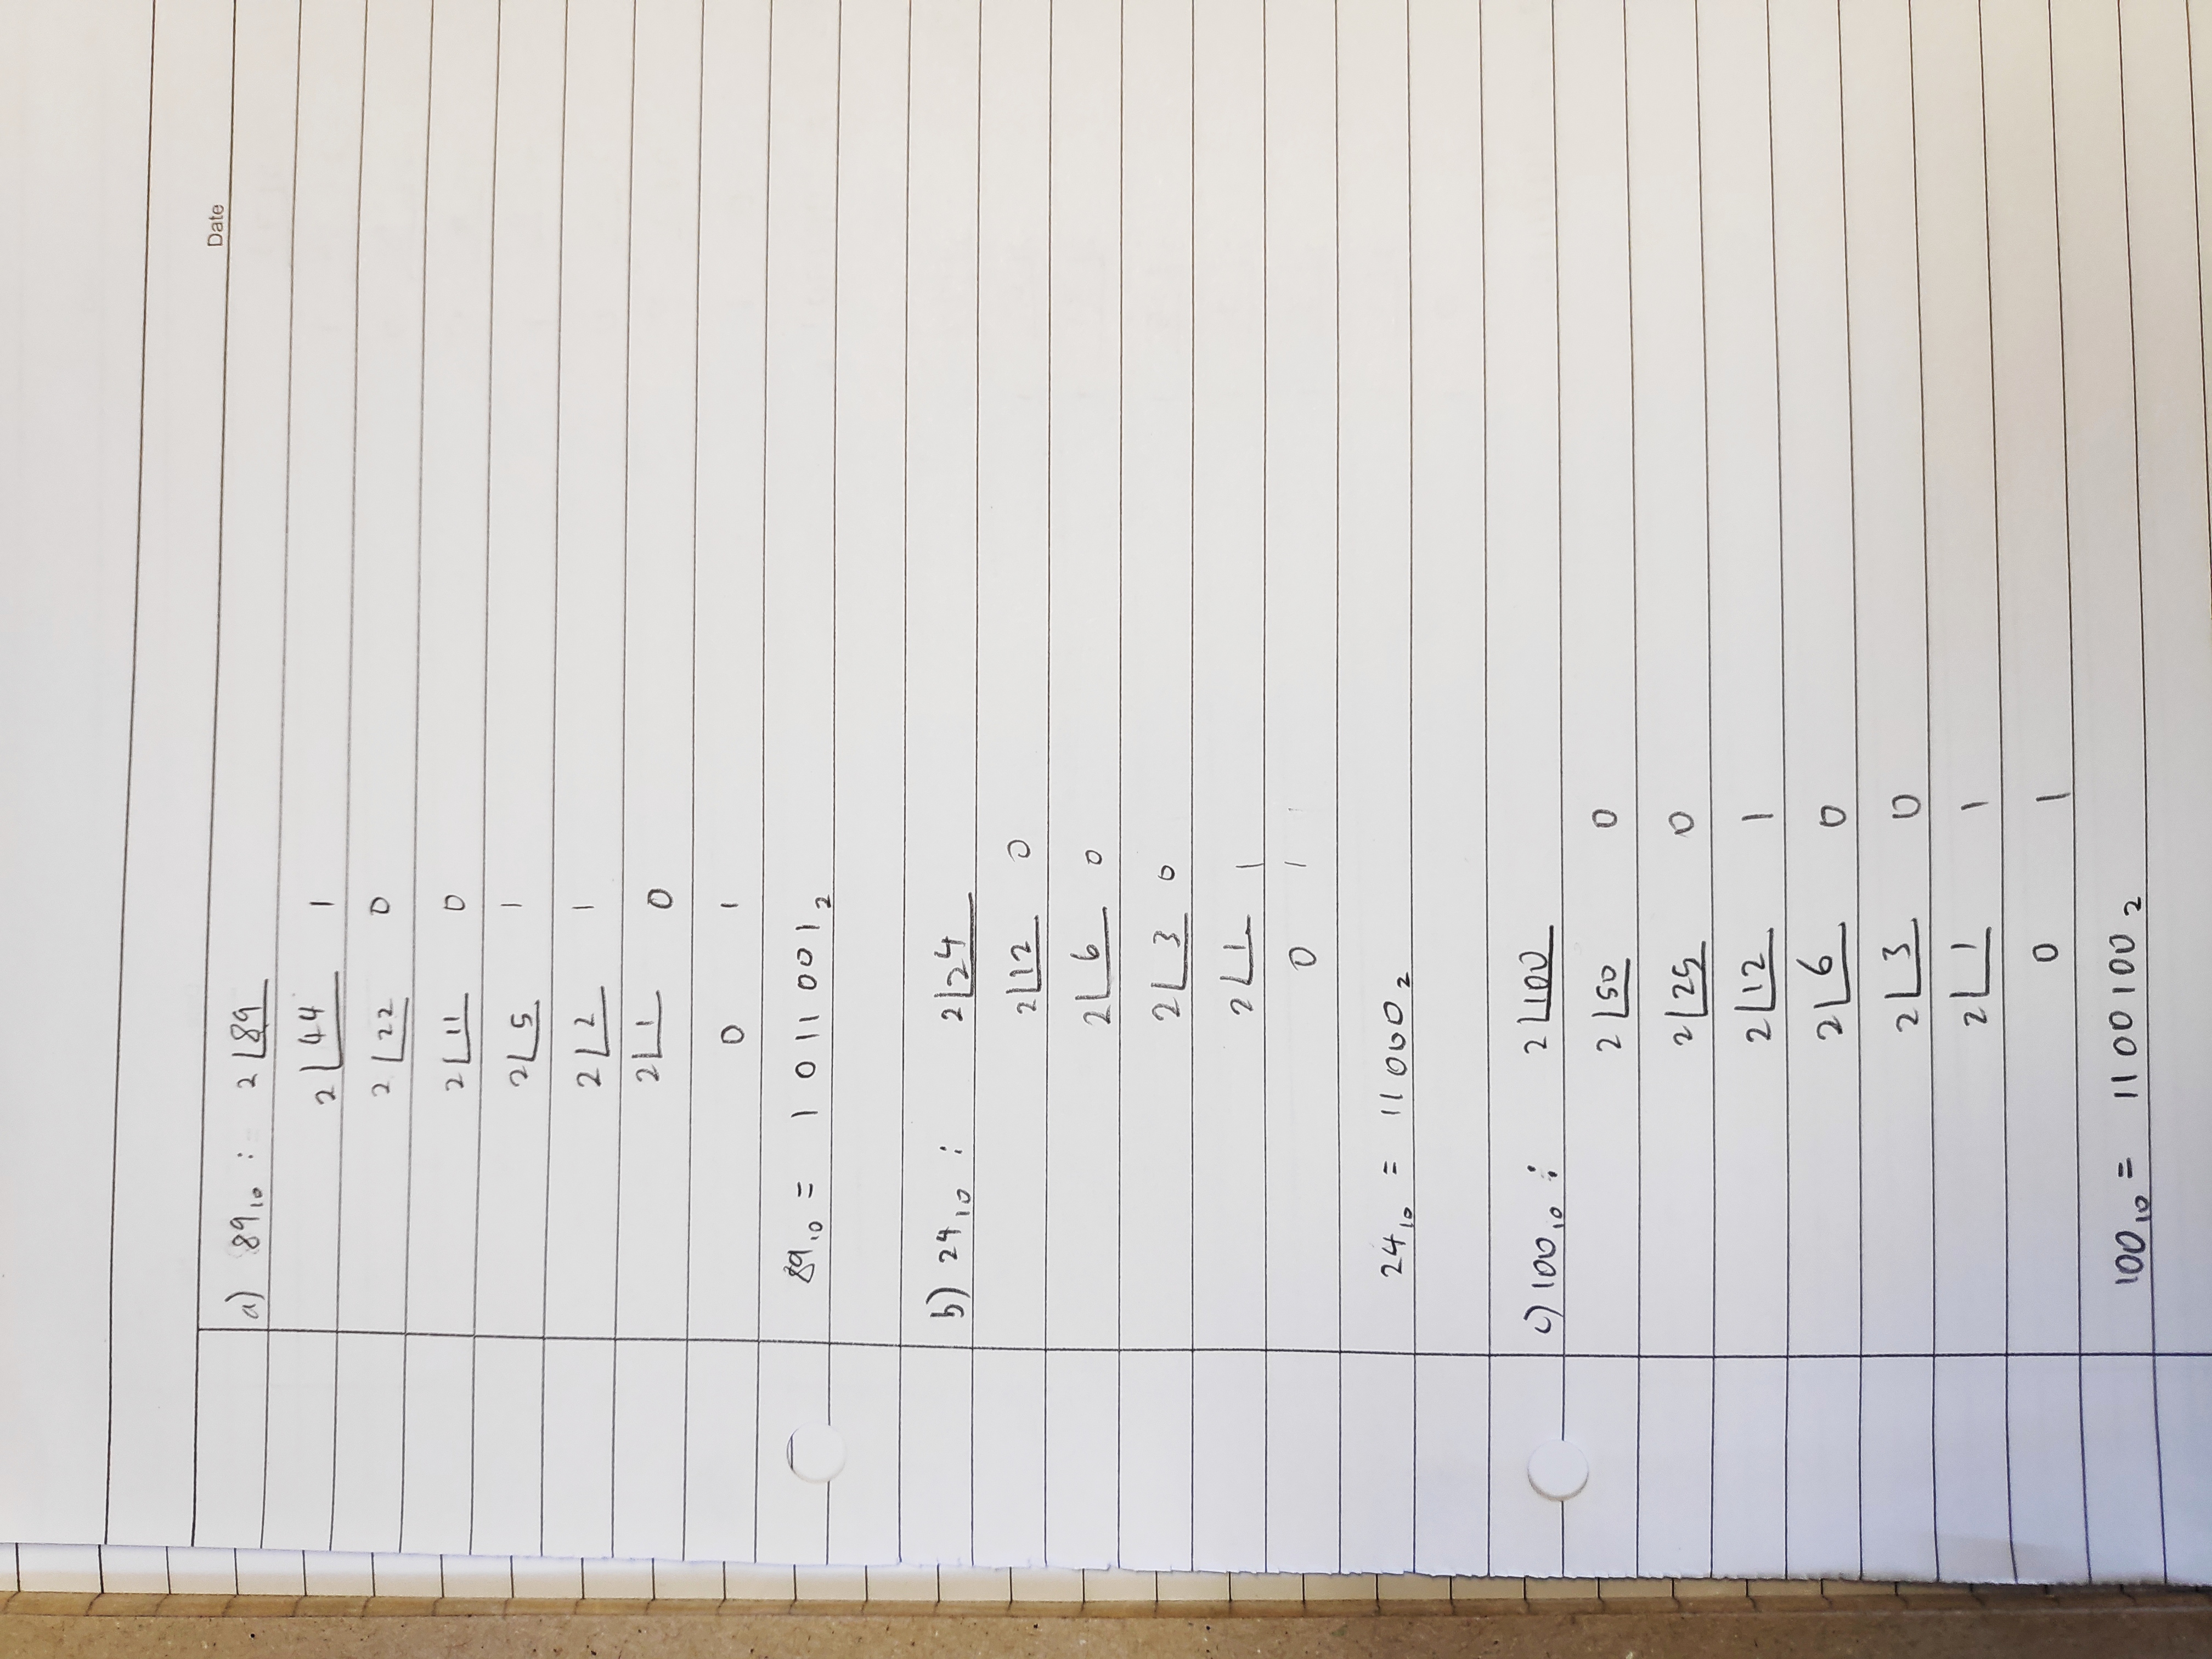 Date
a) 89₁₀ : 2 | 89
2 | 44 1
2 | 22 0
2 | 11 0
2 | 5 1
2 | 2 1
2 | 1 0
0 1
89₁₀ = 1011001₂
b) 24₁₀ : 2 | 24
2 | 12 0
2 | 6 0
2 | 3 0
2 | 1 1
0 1
24₁₀ = 11000₂
c) 100₁₀ : 2 | 100
2 | 50 0
2 | 25 0
2 | 12 1
2 | 6 0
2 | 3 0
2 | 1 1
0 1
100₁₀ = 1100100₂